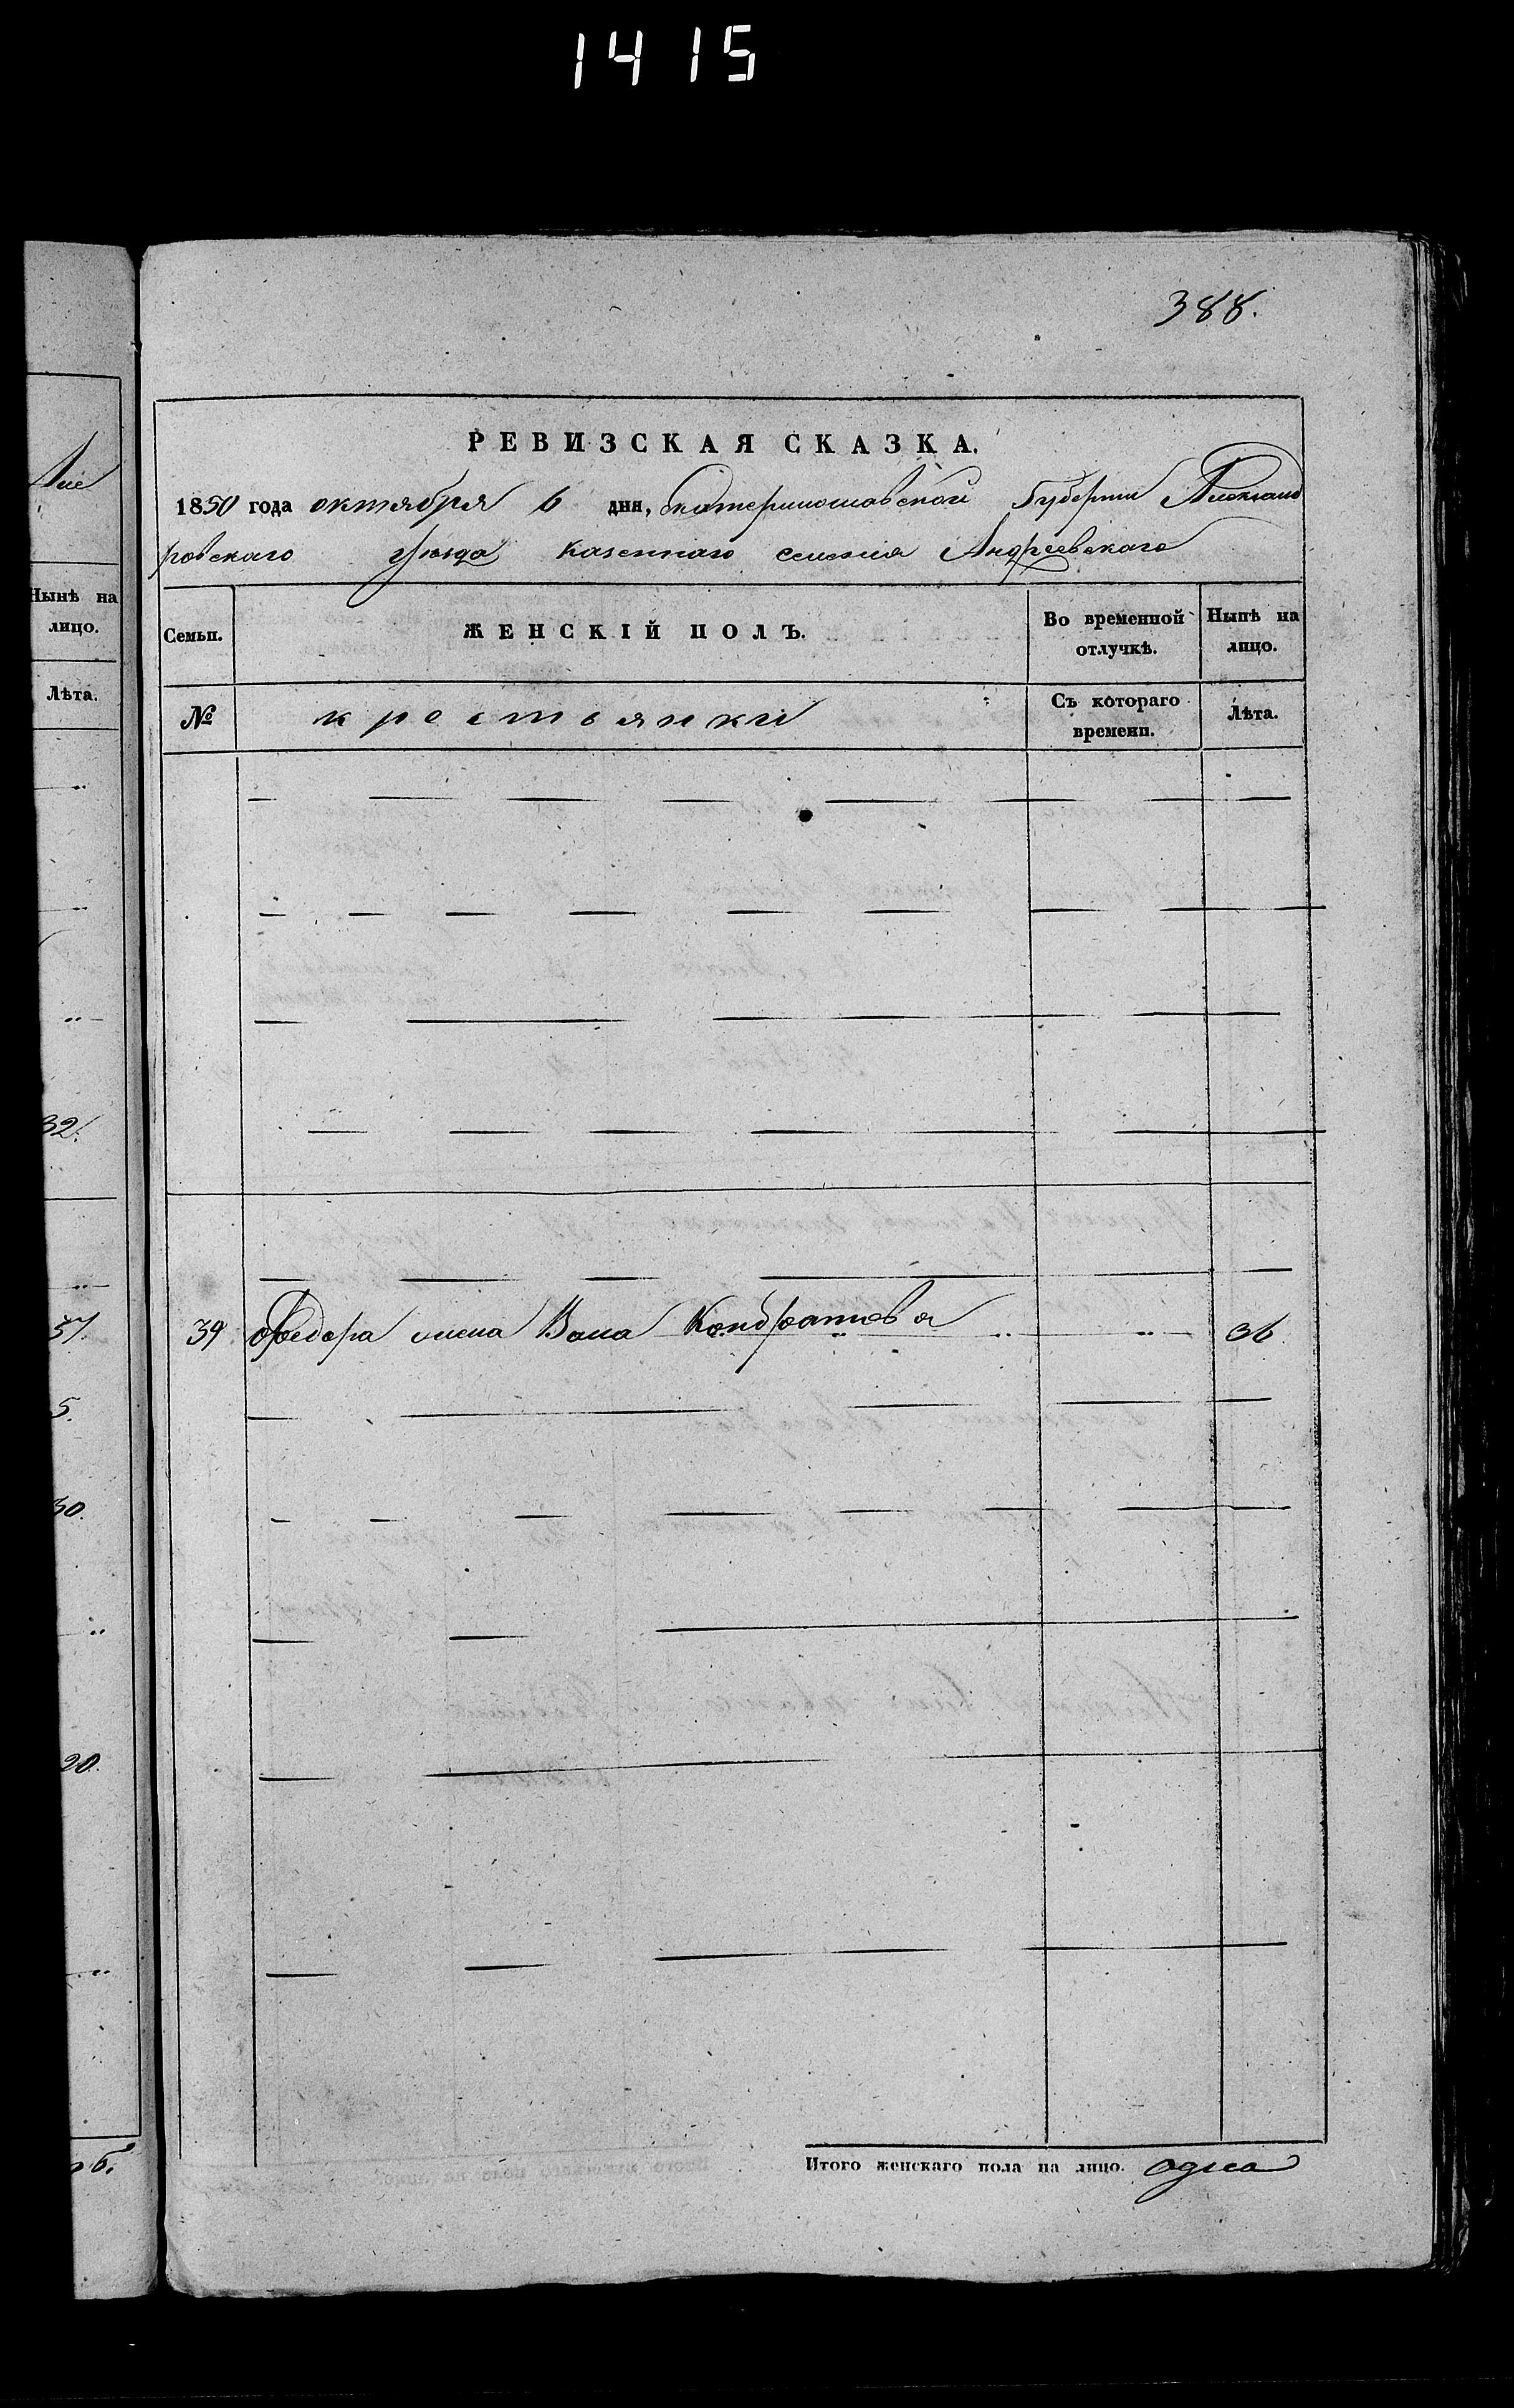 1415
388.
РЕВИЗСКАЯ СКАЗКА.
1850 года октября 6 дня, Екатеринославской Губернии Александ
ровского уезда казеннаго селения Андреевскаго
Семьи.
ЖЕНСКІЙ ПОЛЪ.
Во временной отлучкѣ.
Нынѣ на лицо.
№
крестьянки
Съ котораго времени.
Лѣта.
39 Федора жена Васа Кондратьева 36.
Итого женскаго пола на лицо. одна
Нынѣ на
лицо.
Лѣта.
32.
37.
5.
30.
20.